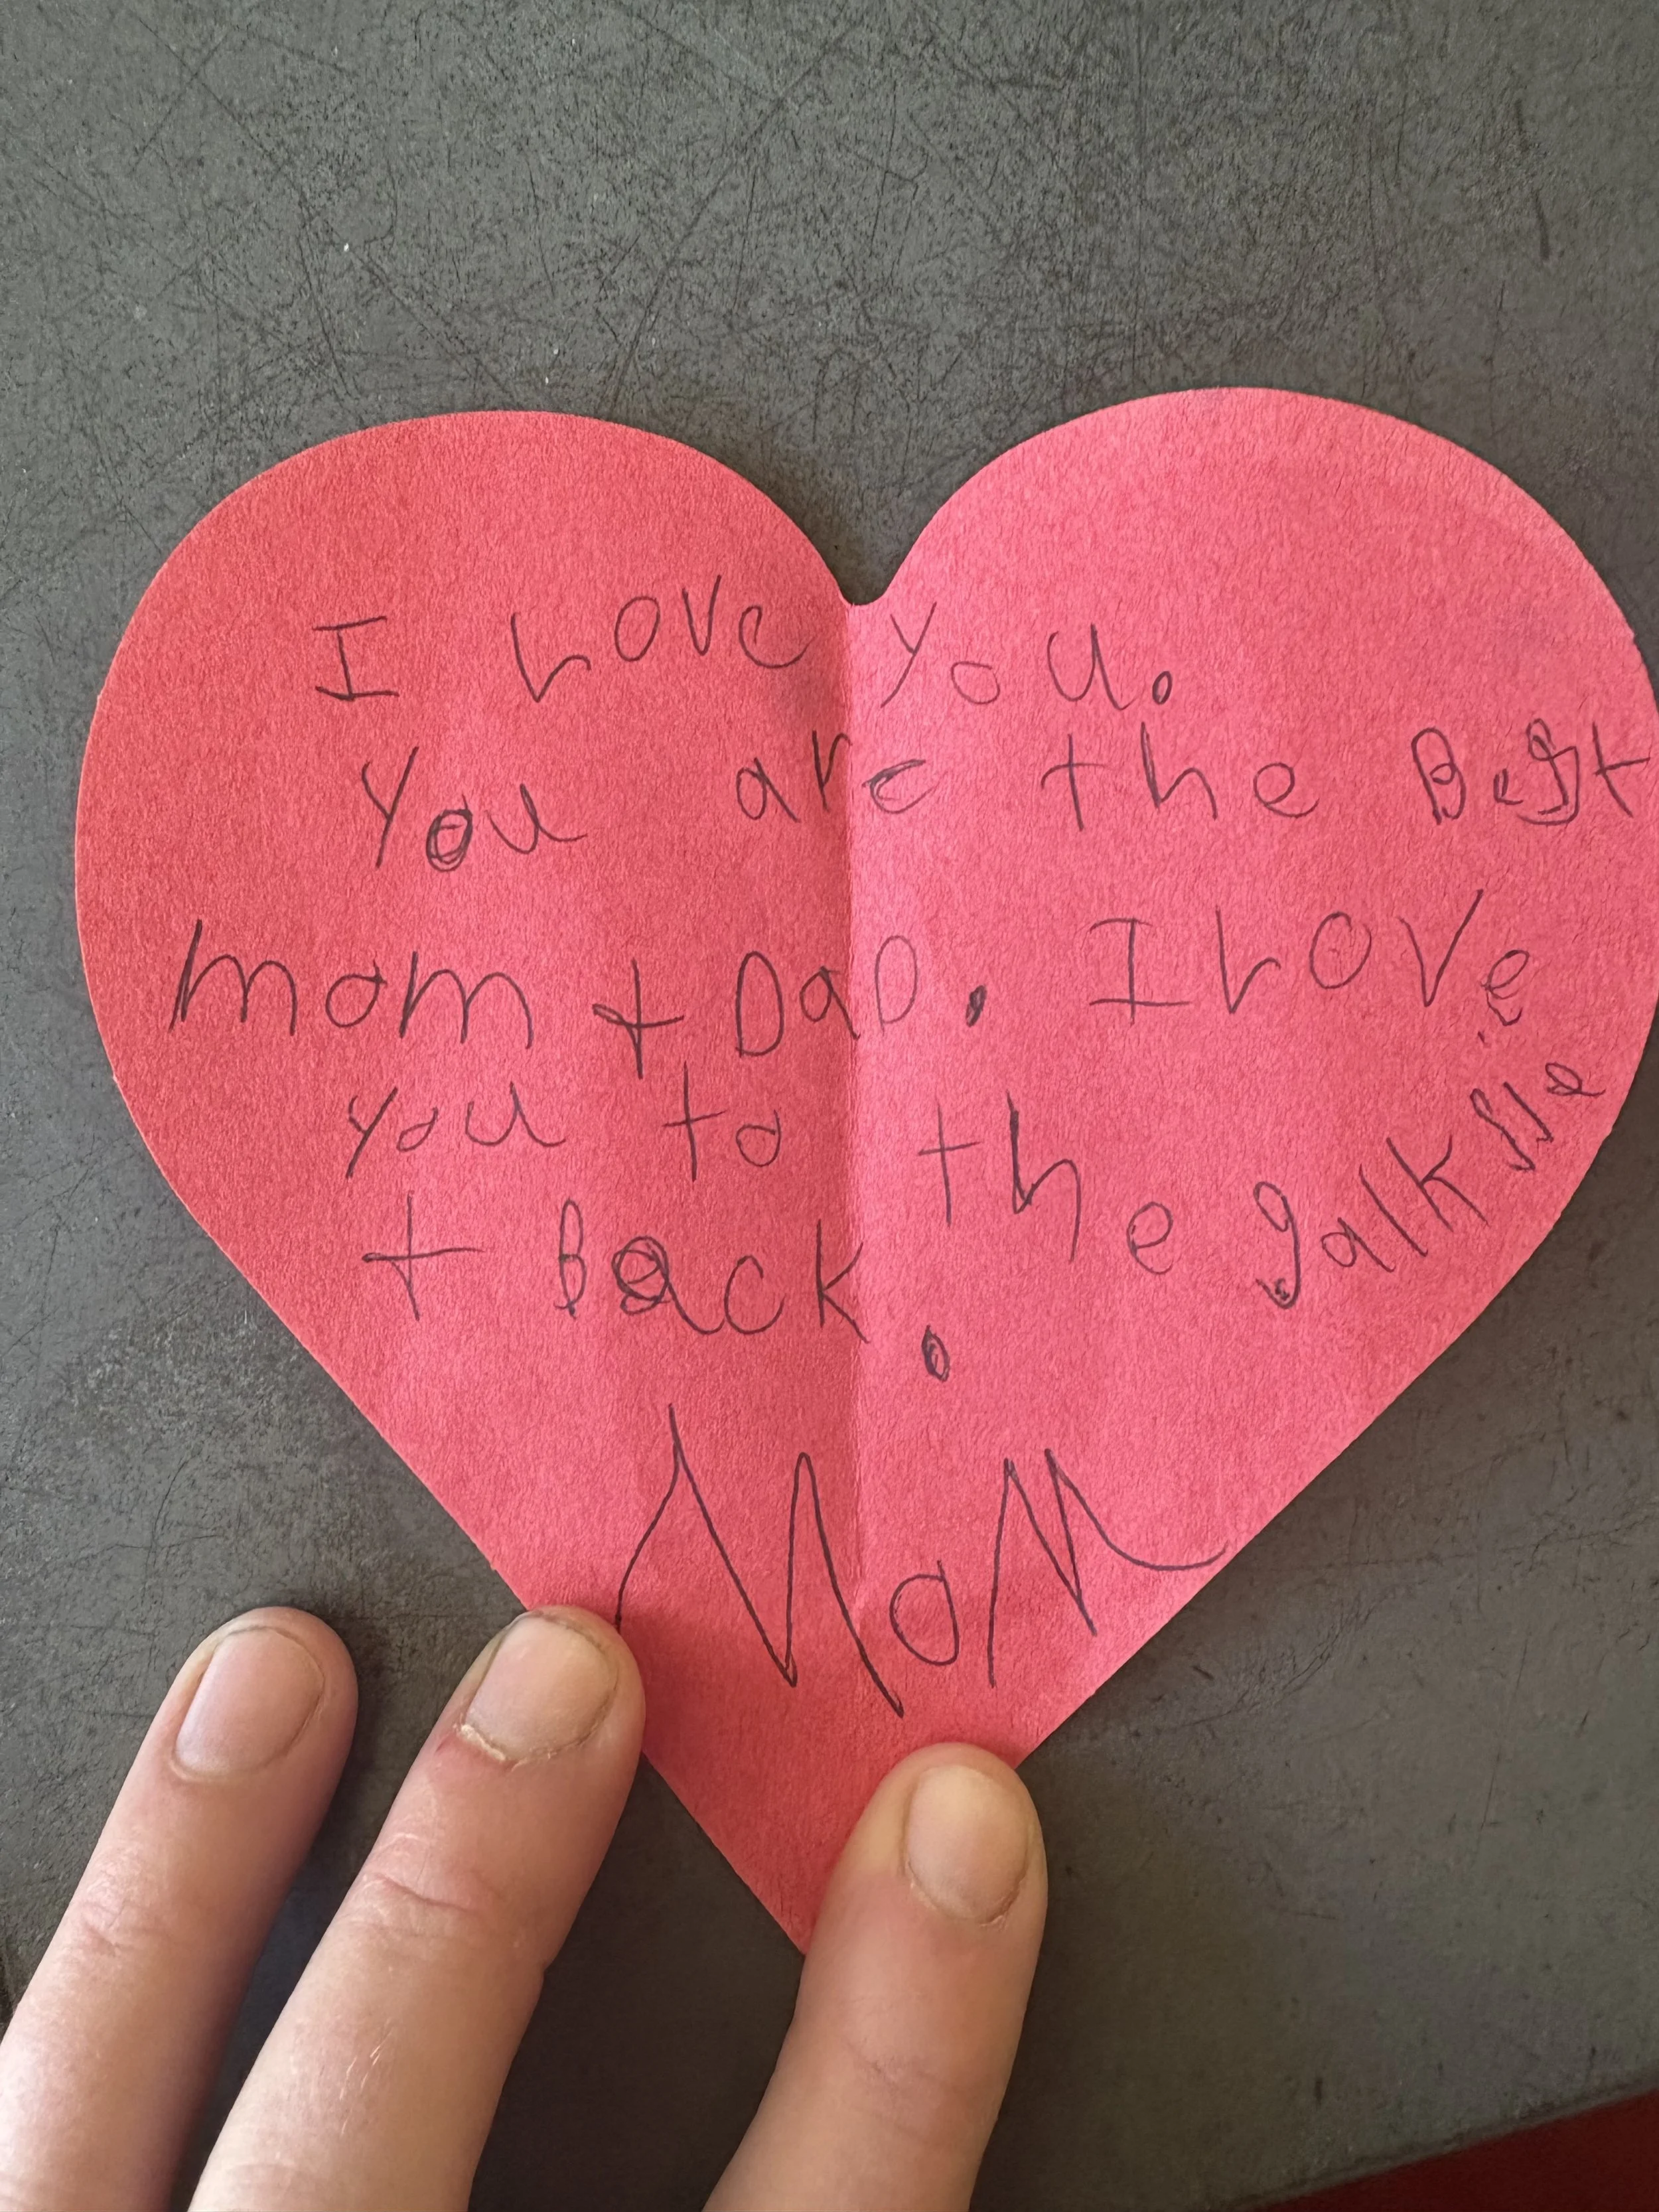 I Love you.
You are the Best
mom + DaD. I Love
you to the galksie
+ Back.
MoM